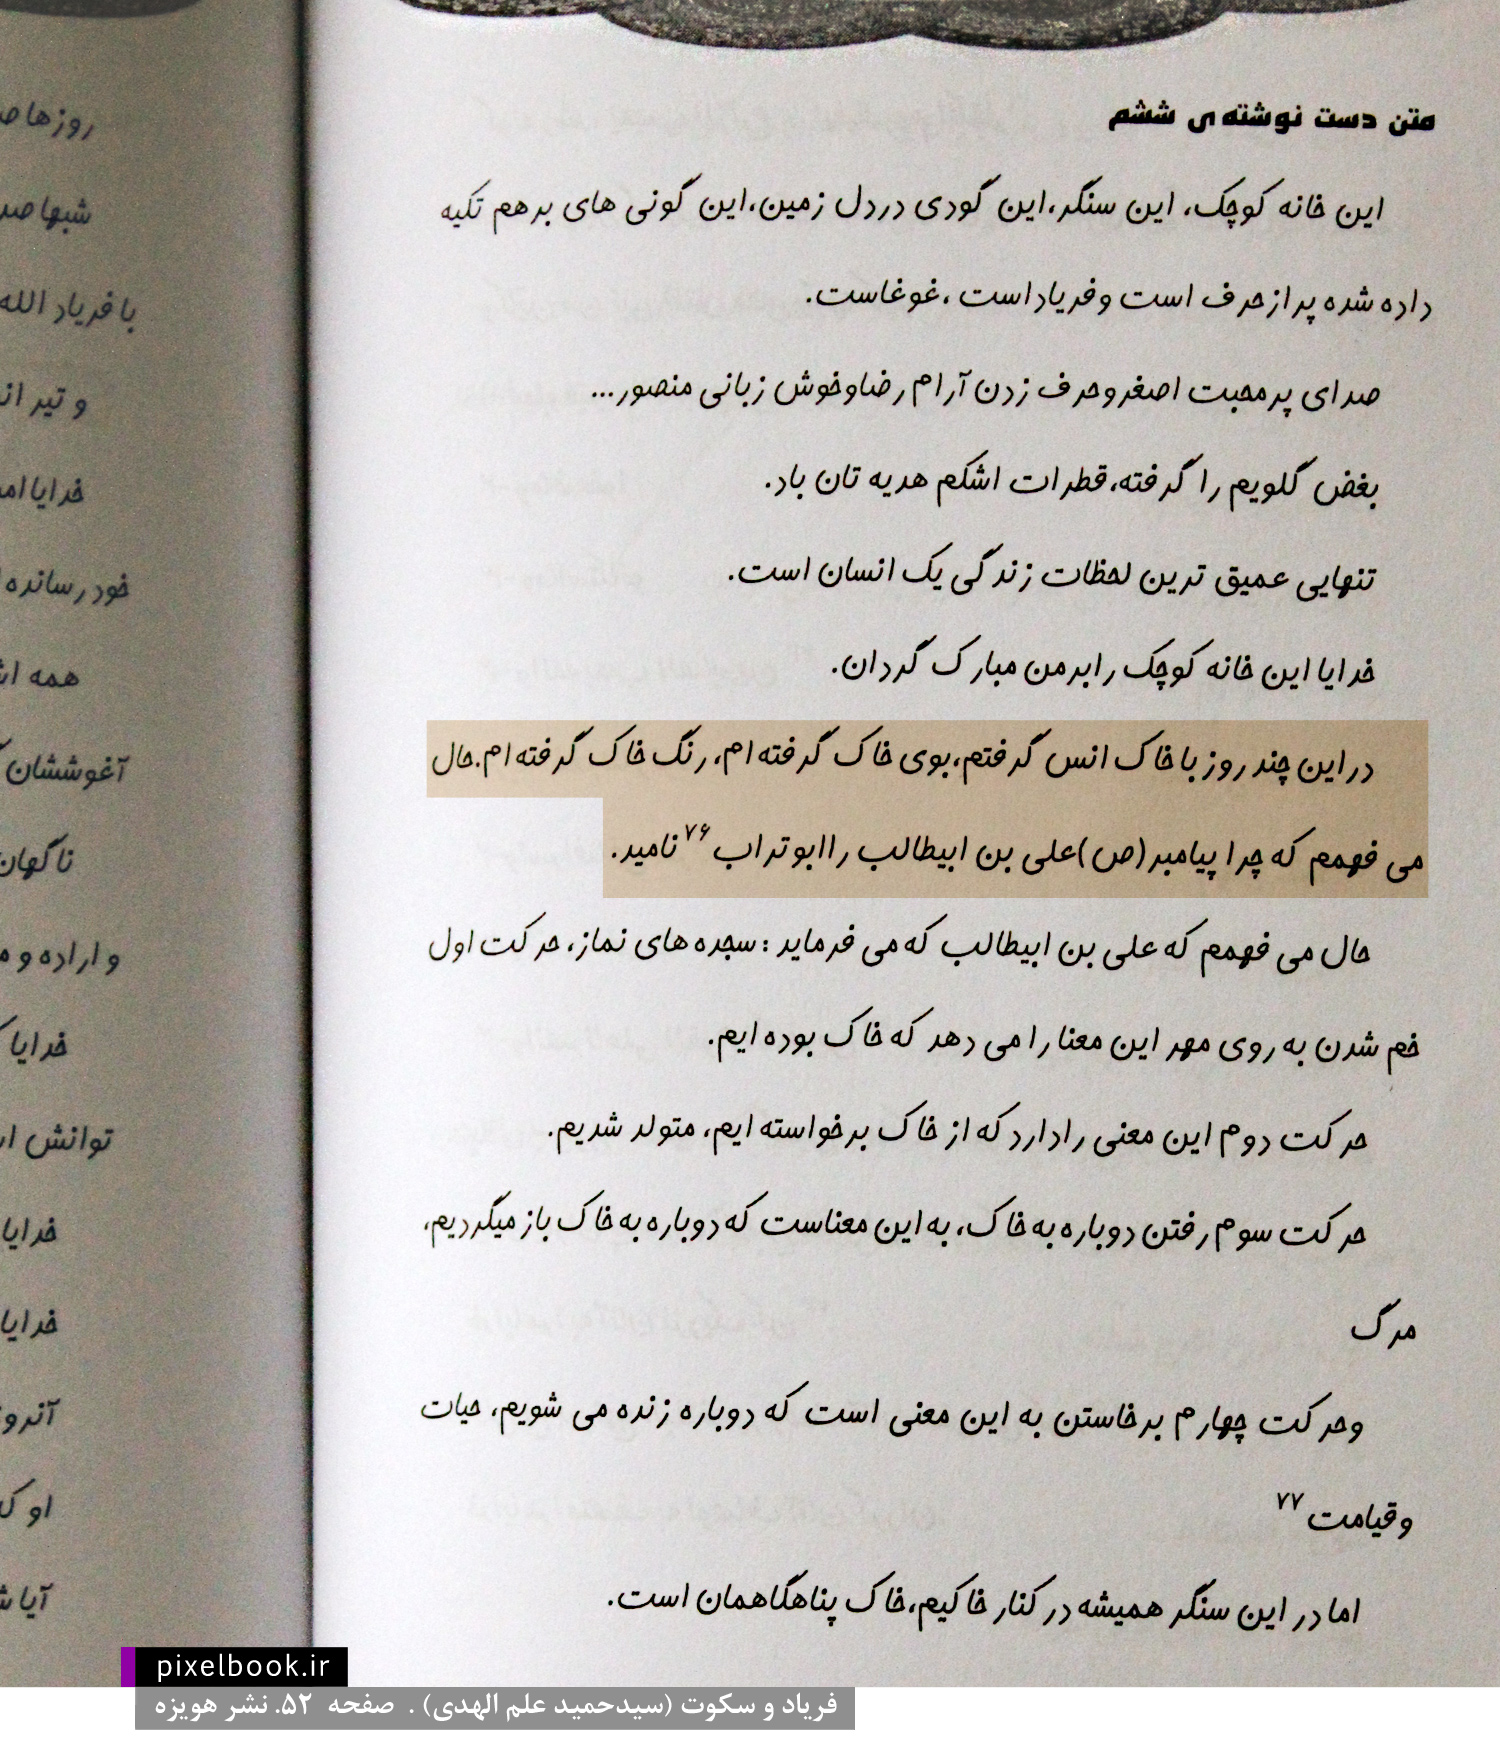 متن دست نوشته ی ششم
این خانه کوچک، این سنگر،این گودی دردل زمین،این گونی های برهم تکیه
داده شده پرازحرف است وفریاداست ،غوغاست.
صدای پرمحبت اصغروحرف زدن آرام رضاوخوش زبانی منصور...
بغض گلویم را گرفته،قطرات اشکم هدیه تان باد.
تنهایی عمیق ترین لحظات زندگی یک انسان است.
خدایا این خانه کوچک رابرمن مبارک گردان.
دراین چند روز با خاک انس گرفتم،بوی خاک گرفته ام، رنگ خاک گرفته ام.حال
می فهمم که چرا پیامبر(ص)علی بن ابیطالب راابوتراب ۷۶ نامید.
حال می فهمم که علی بن ابیطالب که می فرماید : سجده های نماز، حرکت اول
خم شدن به روی مهر این معنا را می دهد که خاک بوده ایم.
حرکت دوم این معنی رادارد که از خاک برخواسته ایم، متولد شدیم.
حرکت سوم رفتن دوباره به خاک، به این معناست که دوباره به خاک باز میگردیم،
مرگ
وحرکت چهارم برخاستن به این معنی است که دوباره زنده می شویم، حیات
وقیامت ۷۷
اما در این سنگر همیشه در کنار خاکیم،خاک پناهگاهمان است.
روزها
شبها
با فریاد الله
و تیر
خدایا
خود رسانده
همه
آغوششان
ناگهان
و اراده و
خدایا
توانش
خدایا
خدایا
او
آیا
pixelbook.ir
فریاد و سکوت (سیدحمید علم الهدی) . صفحه ۵۲. نشر هویزه